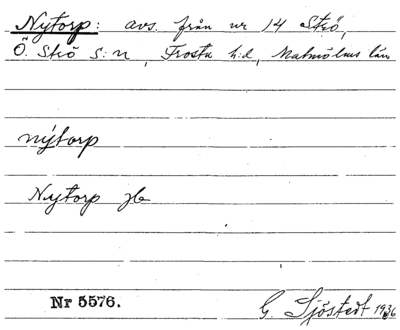 Nytorp: avs. från nr 14 Skö,
Ö. Skö s:n, Frosta h:d, Malmöhus län
nýtorp
Nytorp jb
Nr 5576.
G. Sjöstedt 1936